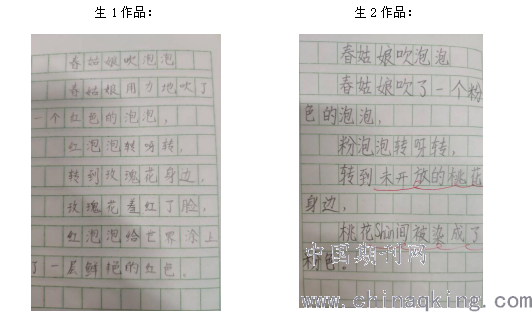 生1作品:
春姑娘吹泡泡
春姑娘用力地吹了
一个红色的泡泡,
红泡泡转呀转,
转到玫瑰花身边,
玫瑰花羞红了脸,
红泡泡给世界涂上
了一层鲜艳的红色。
生2作品:
春姑娘吹泡泡
春姑娘吹了一个粉
色的泡泡,
粉泡泡转呀转,
转到未开放的桃花
身边,
桃花Shùn间被染成了
粉色。
中国期刊网
www.chinaqking.com